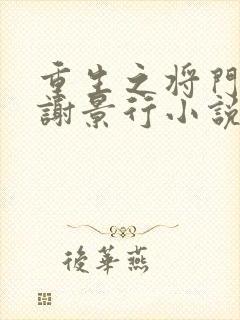 重生之将門
謝景行小説
後華燕